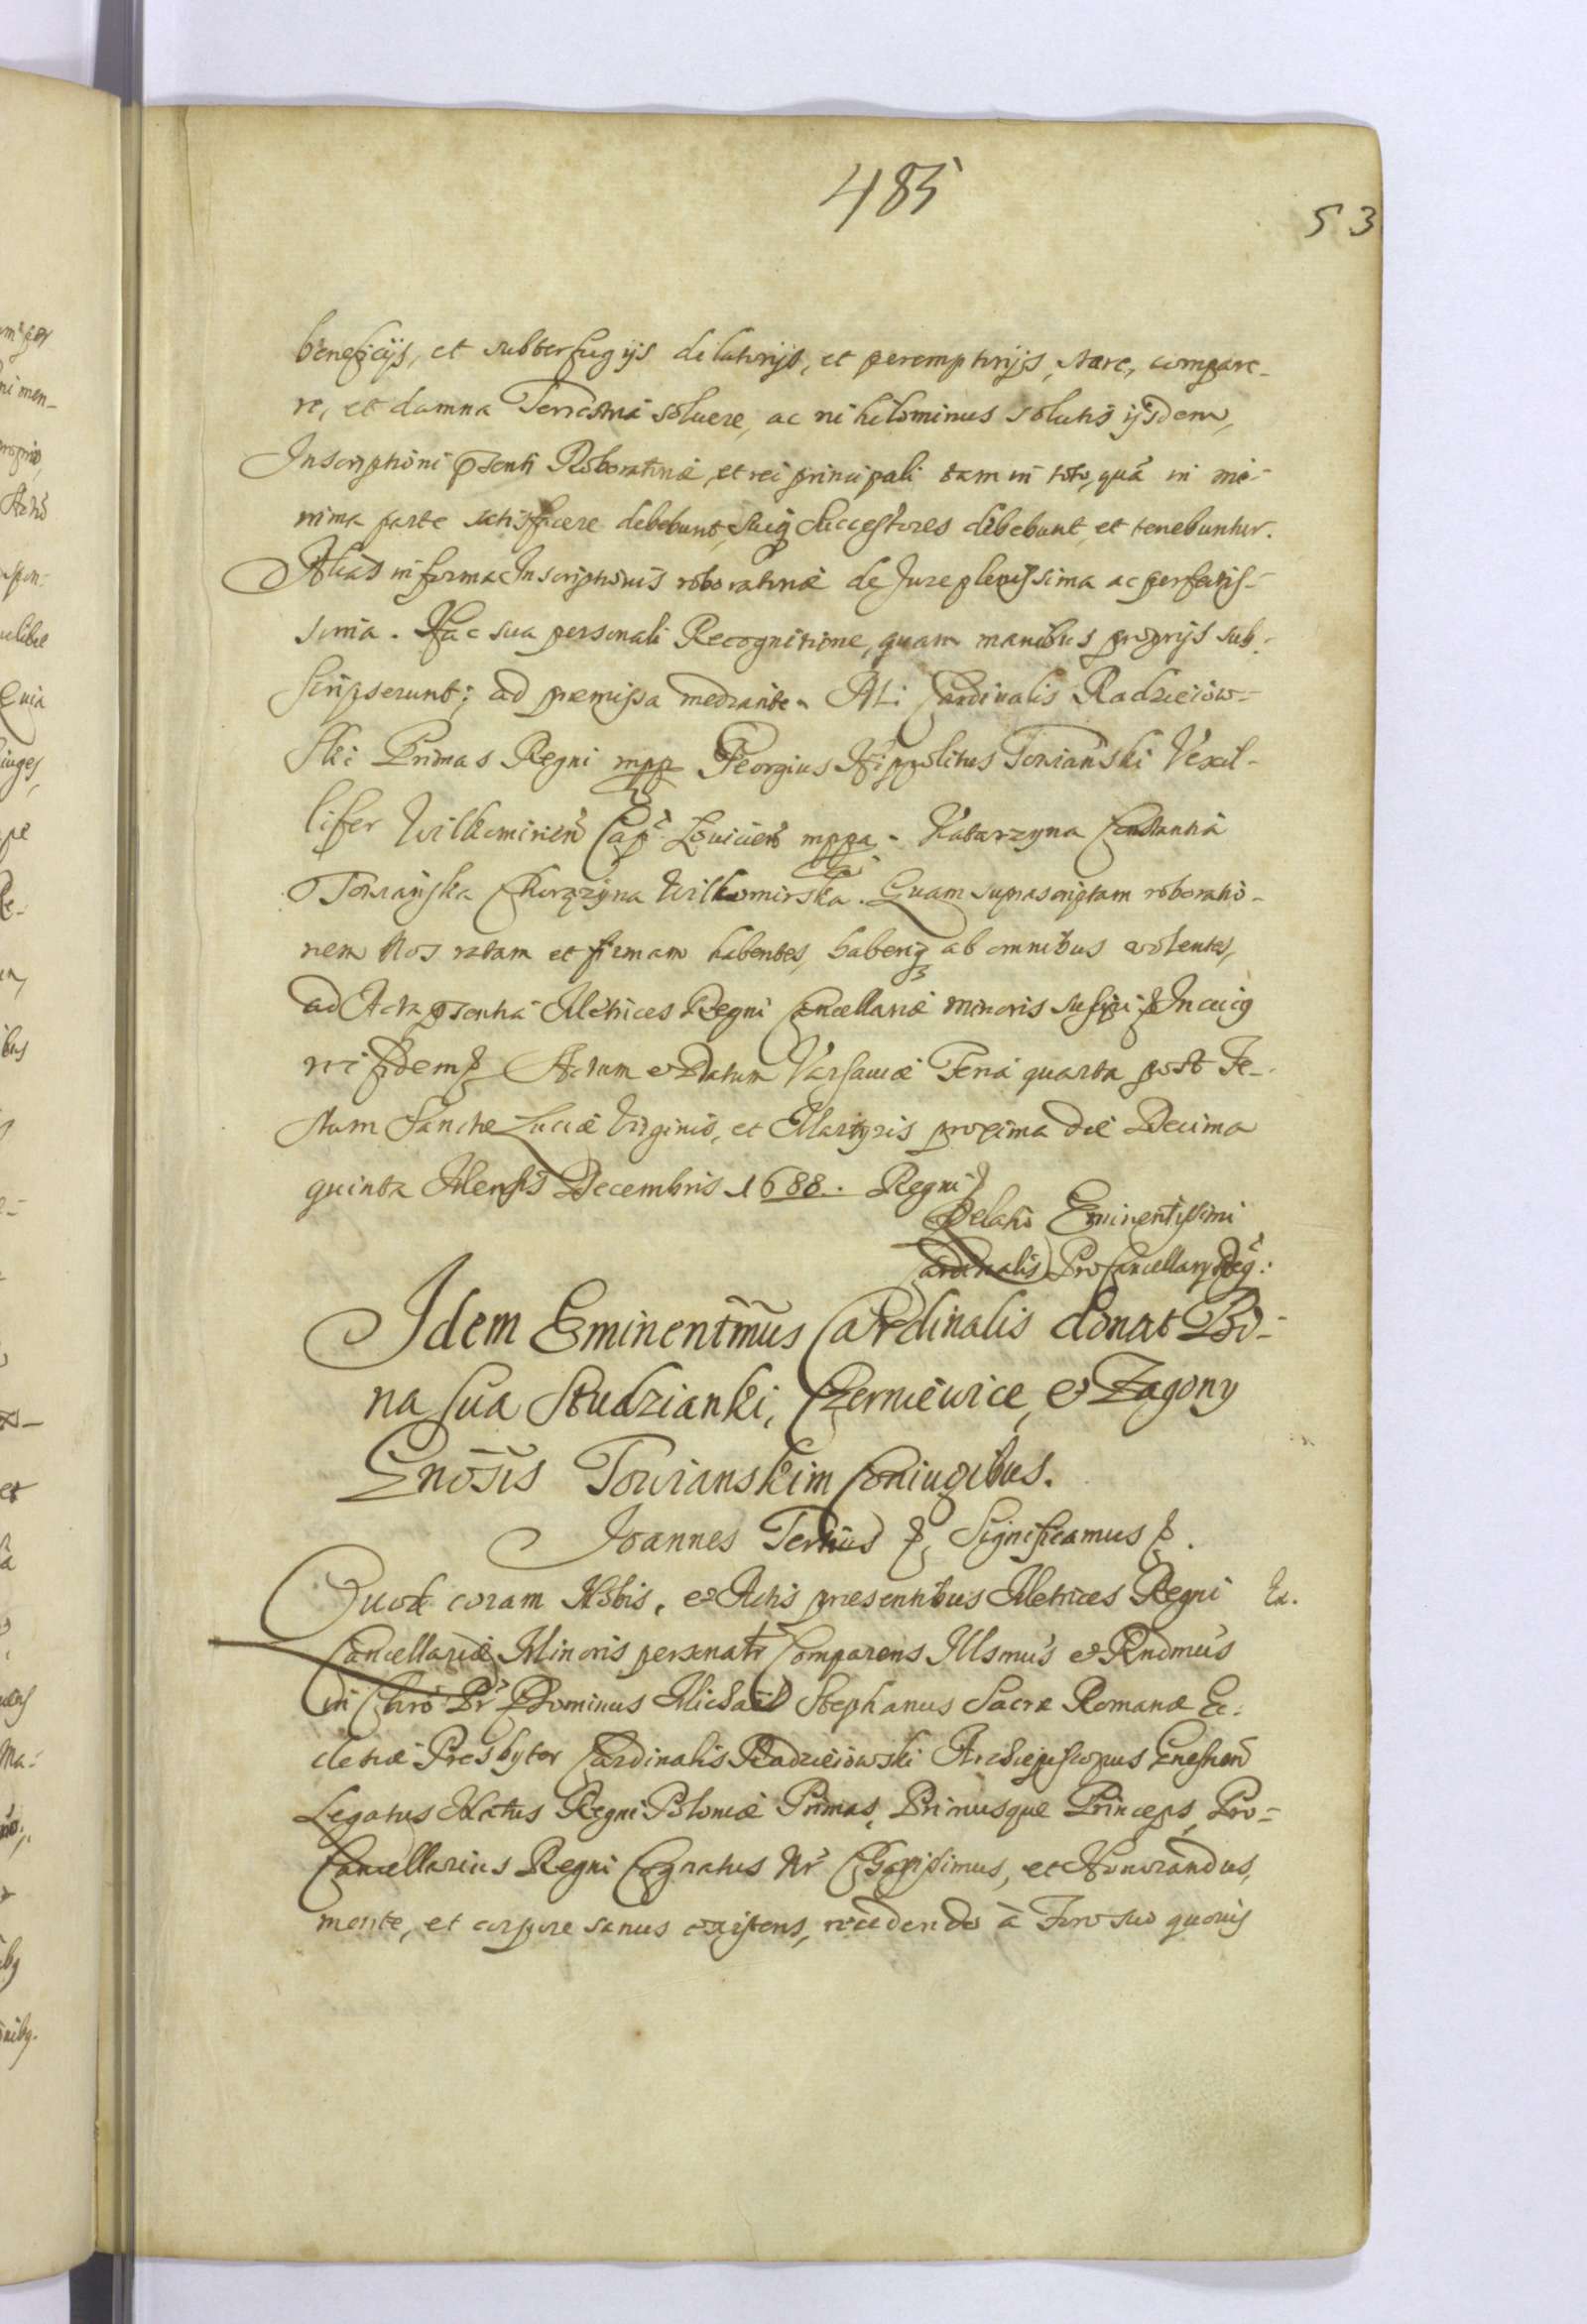 485
53
beneficijs, et subterfugijs dilatorijs, et peremptorijs, stare, compare-
re, et damna Terrestria soluere, ac nihilominus solutis ijsdem,
Inscriptioni pñsenti Roboratoriæ, et rei principali tam in toto, quã in mi-
nima parte satisfacere debebunt, Suiq; Successores debebunt, et tenebuntur.
Alias in forma Inscriptionis roboratoriæ de Jure plenissima ac perfectis-
sima. Hac sua personali Recognitione, quam manibus proprijs sub-
scripserunt; ad præmissa mediante. M: Cardinalis Radzieiow-
ski Primas Regni mpp Georgius Hippolitus Towianski Vexil-
lifer Wilkomirień Capᵗ Louicień mppa. Katarzyna Constantia
Towiańska Chorązyna Wilkomirska. Quam suprascriptam roboratio-
nem Nos ratam et firmam habentes, haberiq; ab omnibus volentes,
ad Acta pñsentia Metrices Regni Cancellariæ minoris suscipi & In cuius
rei fidem & Actum et Datum Varsauiæ Feria quarta post Fe-
stum Sanctæ Luciæ Virginis, et Martyris proxima die Decima
quinta Mensis Decembris 1688. Regni &
Relatio Eminentissimi
Cardinalis ProCancellarij Reg:
Idem Eminentm̃us Cardinalis donat Bo-
na sua Studzianki, Czerniewice, et Zagony
Gnõsis Towianskim Coniugibus.
Joannes Tertius &, Significamus &.
Quod coram Nobis, et Actis præsentibus Metrices Regni Ex.
Cancellariæ Minoris personatr Comparens Illsmus et Rndmus
in Chrõ Pr Dominus Michaël Stephanus Sacræ Romanæ Ec:
clesiæ Presbyter Cardinalis Radzieiowski Archiepiscopus Gnesneñ
Legatus Natus Regni Poloniæ Primas, Primusque Princeps, Pro-
Cancellarius Regni Cognatus Nr Charissimus, et Honorandus,
mente, et corpore sanus existens, recedendo à Foro suo quouis